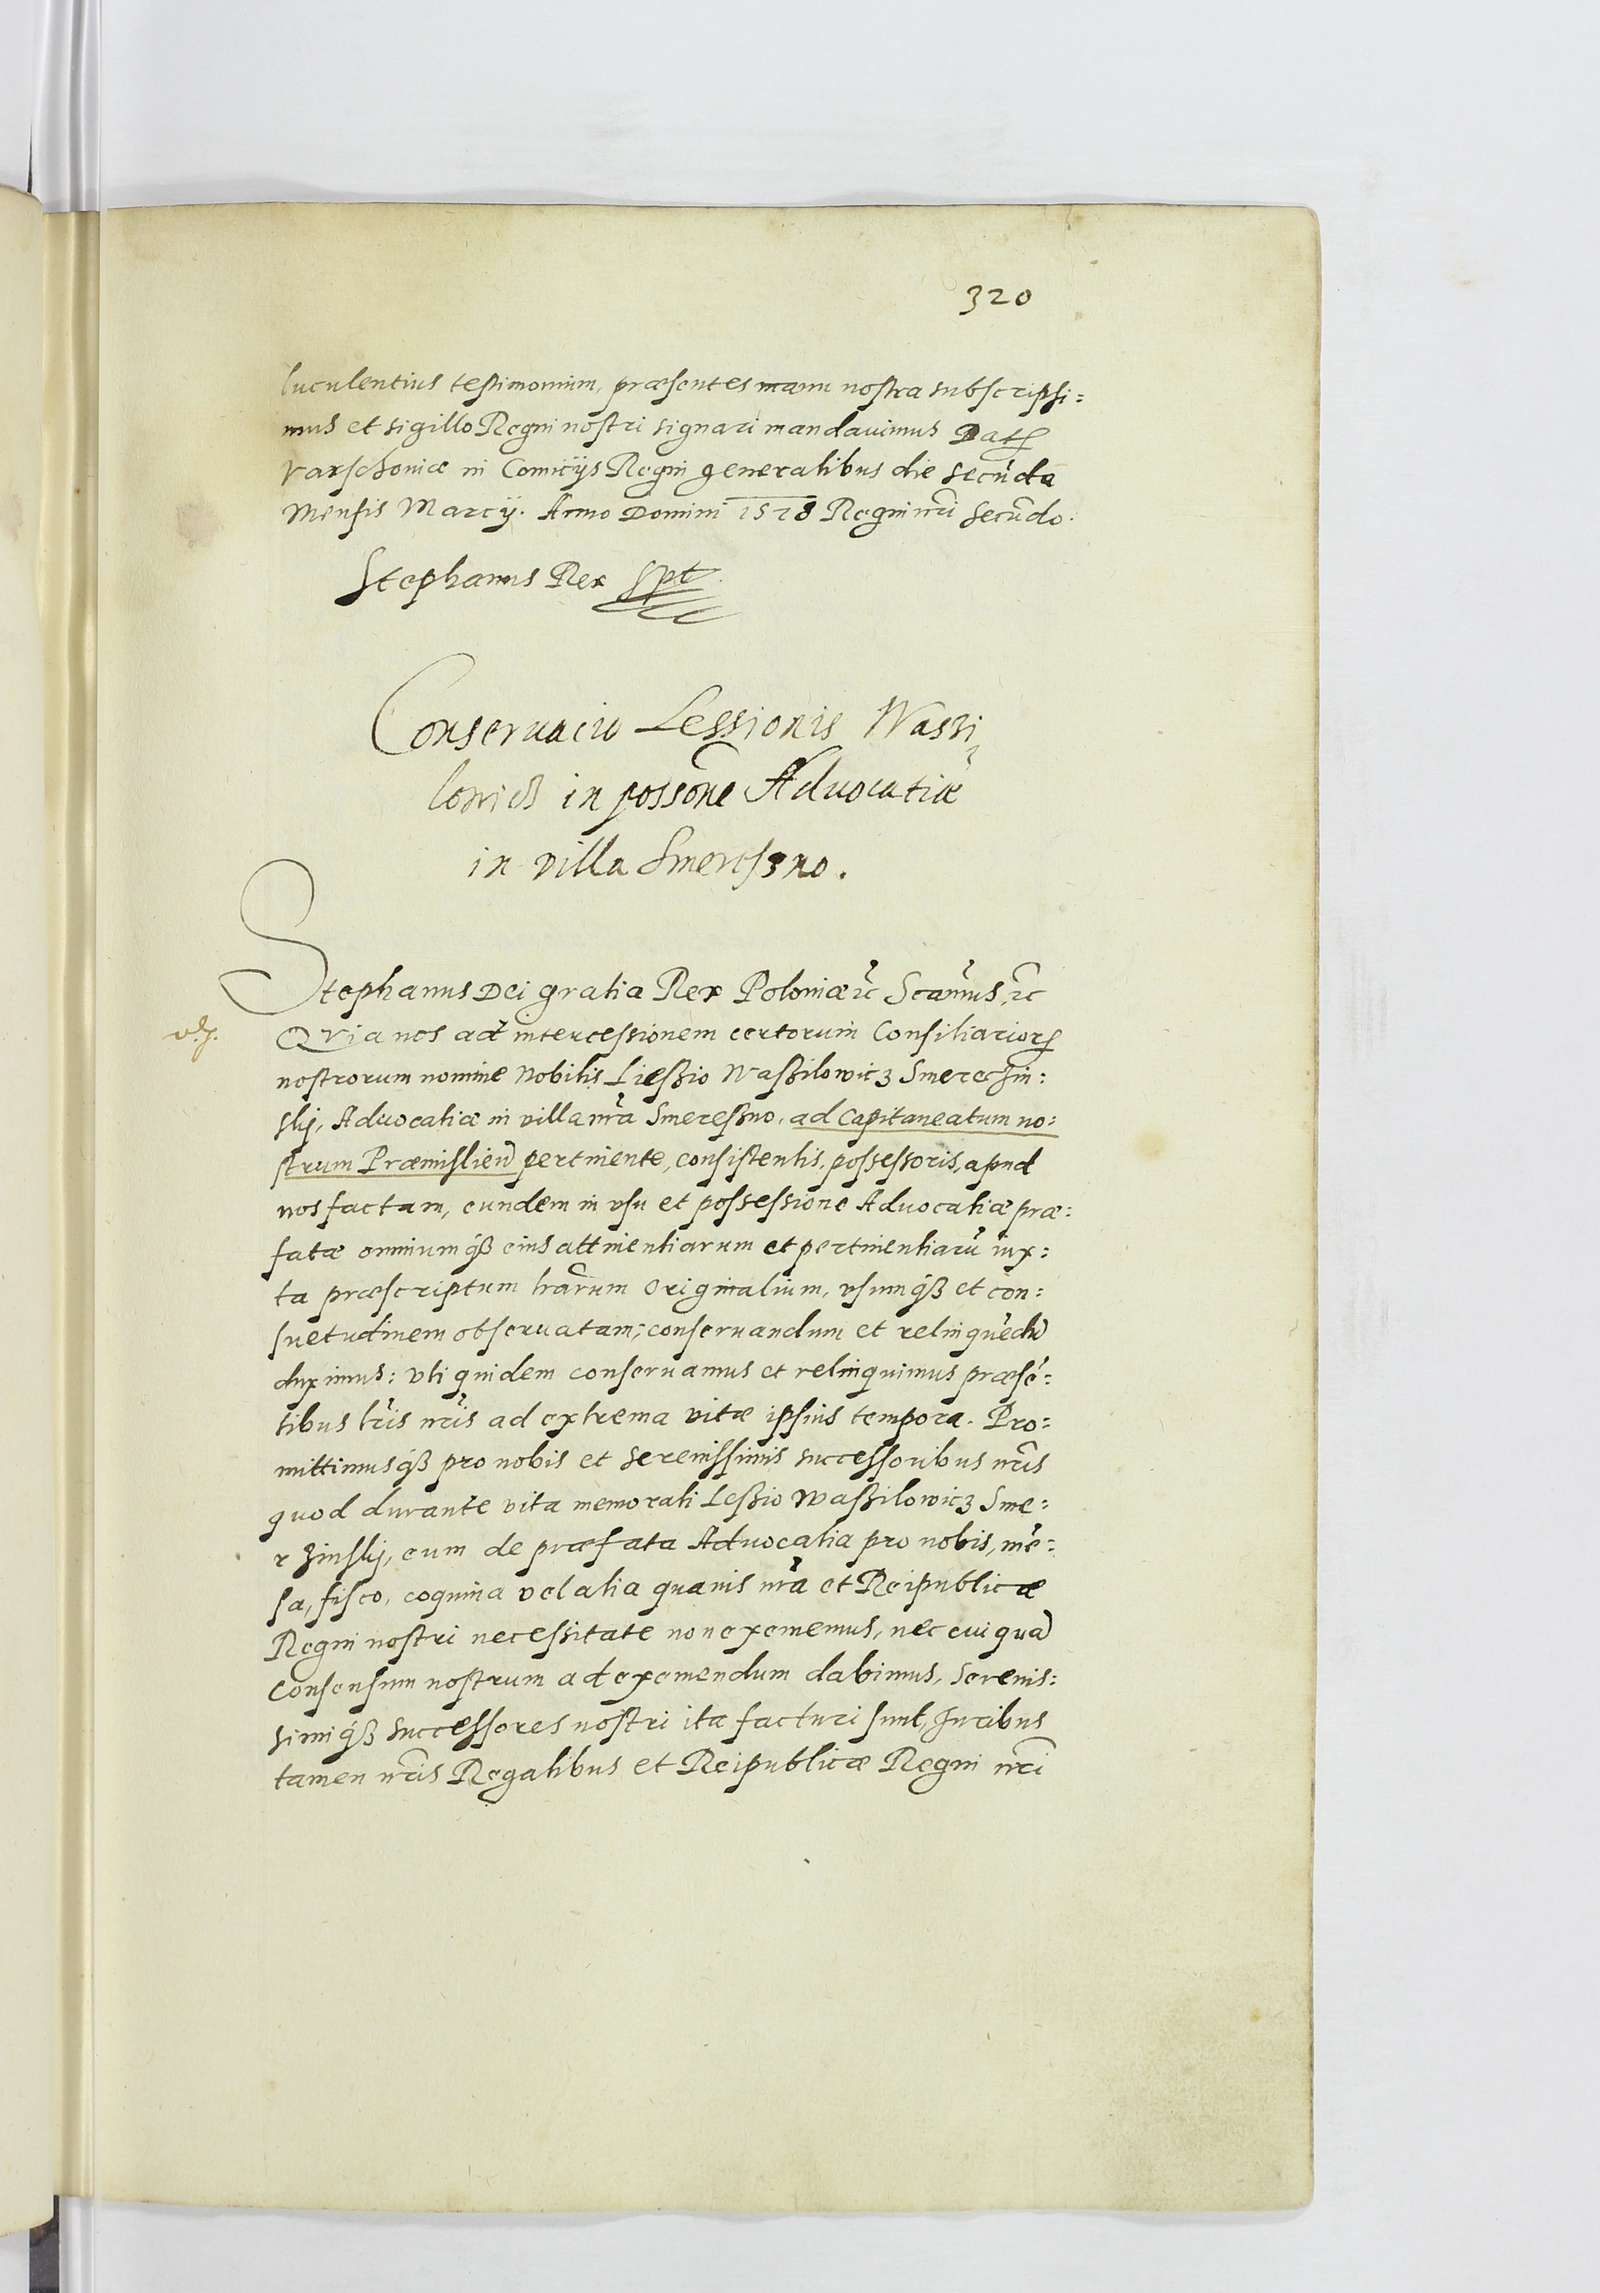 320
luculentius testimonium, præsentes manu nostra subscripsi=
mus et sigillo Regni nostri signari mandauimus Dat
Varschoniæ in Comitijs Regni generalibus die secūda
Mensis Marcij. Anno Domini 1578 Regni nri secūdo.
Stephanus Rex sspt
Conseruacio Lessionis Wassi
lowicz in possone Aduocatiæ
in villa Smereszno.
Stephanus Dei gratia Rex Poloniæ &c Scamus, &c
Quia nos ad intercessionem certorum Consiliarior
nostrorum nomine Nobilis Lieszio Waszilowicz Smereczin=
skj, Aduocatiæ in villa nra Smereszno, ad Capitaneatum no=
strum Præmislien pertinente, consistentis, possessoris, apud
nos factam, eundem in vsu et possessione Aduocatiæ præ=
fatæ omniumqß eius attinentiarum et pertinentiarū iux=
ta præscriptum lrarum originalium, vsumqß et con=
suetudinem obseruatam; conseruandum et relinquēdū
duximus: vti quidem conseruamus et relinquimus præsē=
tibus lris nris ad extrema vitæ ipsius tempora. Pro=
mittimusqß pro nobis et serenissimis successoribus nris
quod durante vita memorati Leszio Waszilowicz Sme=
rzinskj, eum de præfata Aduocatia pro nobis, mē=
sa, fisco, coquina vel alia quauis nra et Reipublicæ
Regni nostri necessitate non exememus, nec cuiquā
consensum nostrum ad exemendum dabimus, serenis=
simiqß successores nostri ita facturi sunt, Iuribus
tamen nris Regalibus et Reipublicæ Regni nri